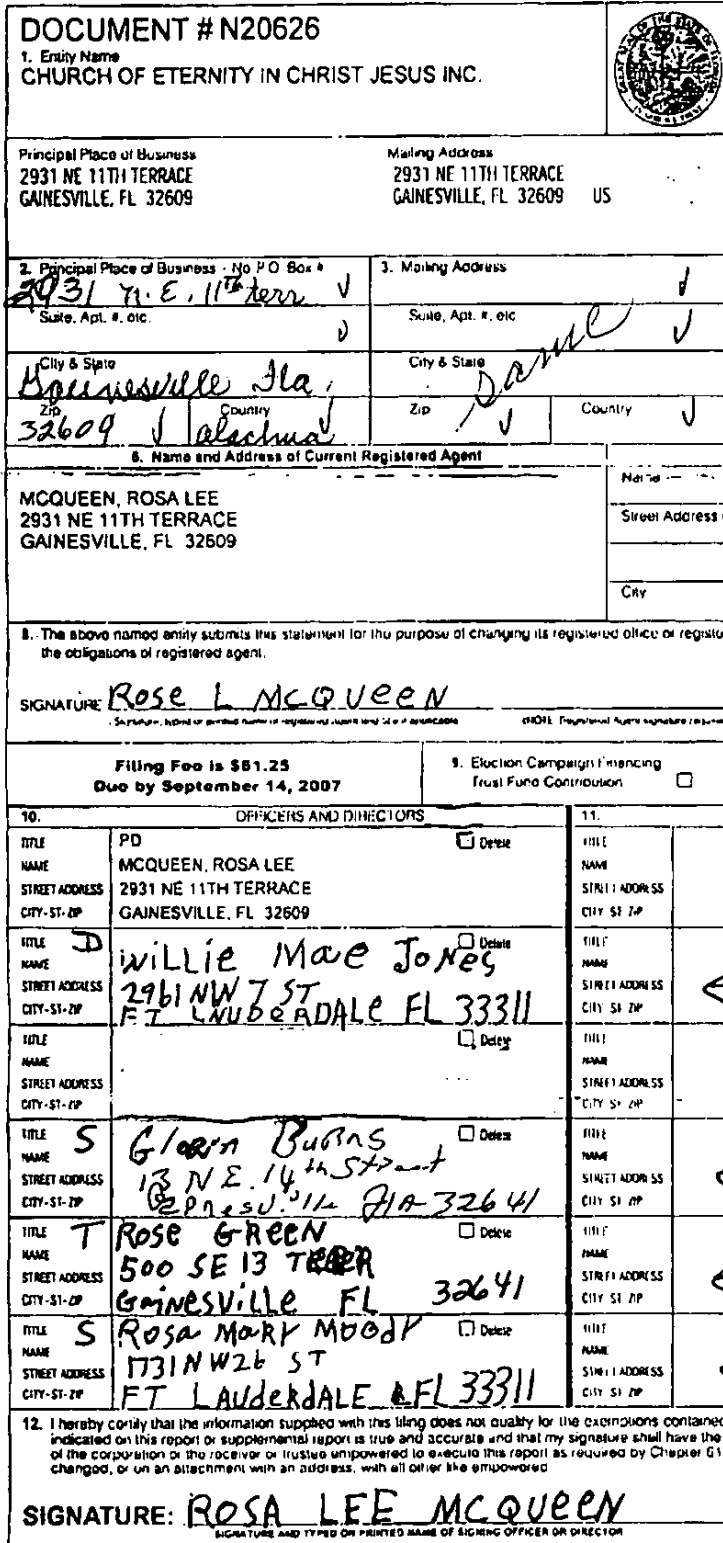 DOCUMENT # N20626
1. Entity Name
CHURCH OF ETERNITY IN CHRIST JESUS INC.
Principal Place of Business
2931 NE 11TH TERRACE
GAINESVILLE, FL 32609
Mailing Address
2931 NE 11TH TERRACE
GAINESVILLE, FL 32609 US
2. Principal Place of Business - No P.O. Box #
2931 N.E. 11th terr
Suite, Apt. #, etc.
City & State
Gainesville Fla.
Zip
32609
Country
alachua
3. Mailing Address
Suite, Apt. #, etc
City & State
Same
Zip
Country
6. Name and Address of Current Registered Agent
MCQUEEN, ROSA LEE
2931 NE 11TH TERRACE
GAINESVILLE, FL 32609
Name
Street Address
City
8. The above named entity submits this statement for the purpose of changing its registered office or registe
the obligations of registered agent.
SIGNATURE Rose L McQueen
Signature, typed or printed name of registered agent and title if applicable
(NOTE: Registered Agent signature require
Filing Fee is $61.25
Due by September 14, 2007
9. Election Campaign Financing
Trust Fund Contribution
10. OFFICERS AND DIRECTORS 11.
TITLE PD Delete
NAME MCQUEEN, ROSA LEE
STREET ADDRESS 2931 NE 11TH TERRACE
CITY-ST-ZIP GAINESVILLE, FL 32609
TITLE D Delete
NAME Willie Mae Jones
STREET ADDRESS 2961 NW 7 ST
CITY-ST-ZIP FT LAUDERDALE FL 33311
TITLE Delete
NAME
STREET ADDRESS
CITY-ST-ZIP
TITLE S Delete
NAME Gloria Burns
STREET ADDRESS 13 N E. 14th Street
CITY-ST-ZIP FlA 32641
TITLE T Delete
NAME Rose GREEN
STREET ADDRESS 500 SE 13
CITY-ST-ZIP GAiNESVille FL 32641
TITLE S Delete
NAME Rosa MARY MOODY
STREET ADDRESS 1731 NW26 ST
CITY-ST-ZIP FT LAUderdALE FL 33311
TITLE
NAME
STREET ADDRESS
CITY-ST-ZIP
TITLE
NAME
STREET ADDRESS
CITY-ST-ZIP
TITLE
NAME
STREET ADDRESS
CITY-ST-ZIP
TITLE
NAME
STREET ADDRESS
CITY-ST-ZIP
TITLE
NAME
STREET ADDRESS
CITY-ST-ZIP
TITLE
NAME
STREET ADDRESS
CITY-ST-ZIP
12. I hereby certify that the information supplied with this filing does not qualify for the exemptions contained
indicated on this report or supplemental report is true and accurate and that my signature shall have the
of the corporation or the receiver or trustee empowered to execute this report as required by Chapter 61
changed, or on an attachment with an address, with all other like empowered
SIGNATURE: ROSA LEE MCQUEEN
SIGNATURE AND TYPED OR PRINTED NAME OF SIGNING OFFICER OR DIRECTOR